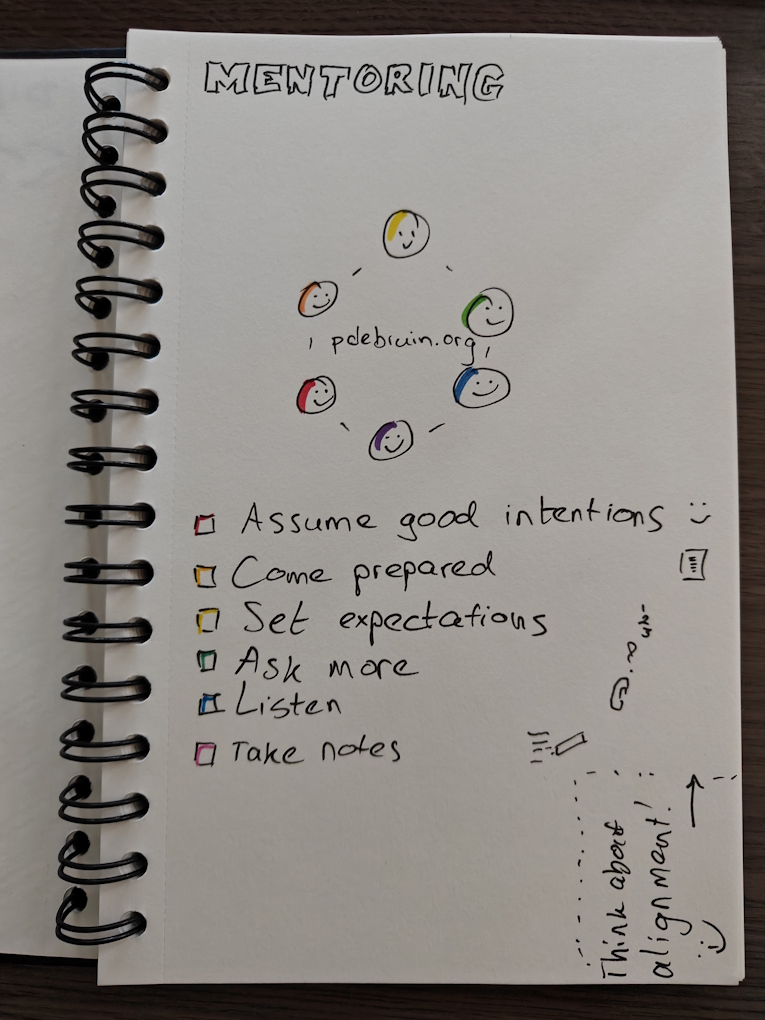 MENTORING
pdebruin.org
Assume good intentions
Come prepared
Set expectations
Ask more
Listen
Take notes
Think about
alignment!